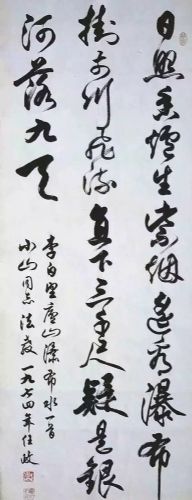 日照香爐生紫烟遥看瀑布
掛前川飛流直下三千尺疑是銀
河落九天
李白望廬山瀑布水一首
小山同志法教 一九七四年任政